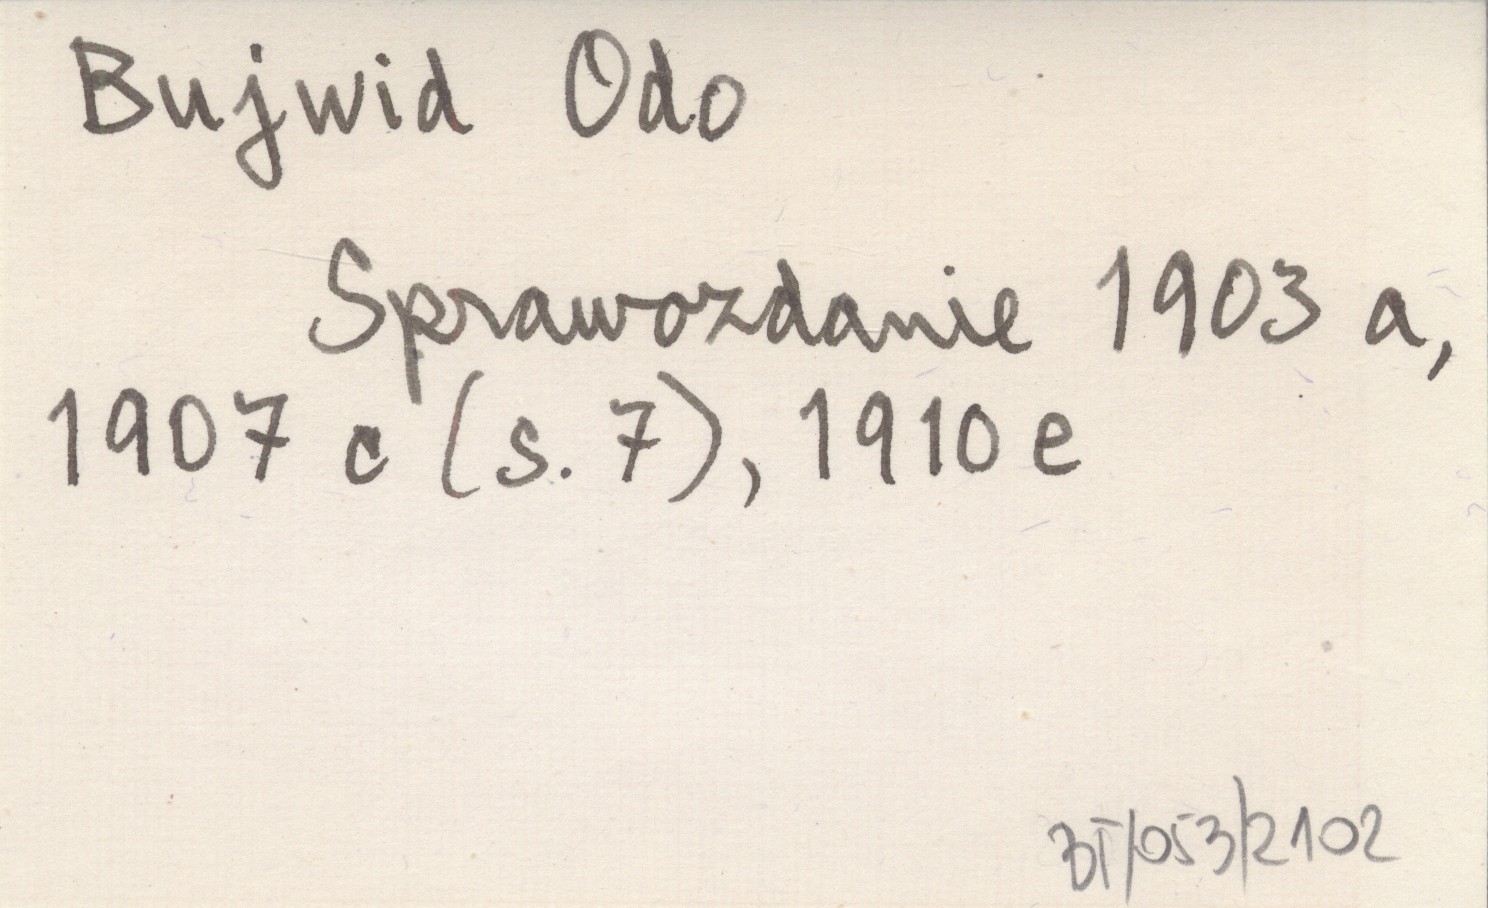 Bujwid Odo
Sprawozdanie 1903 a,
1907 c (s. 7), 1910 e
BT/053/2102